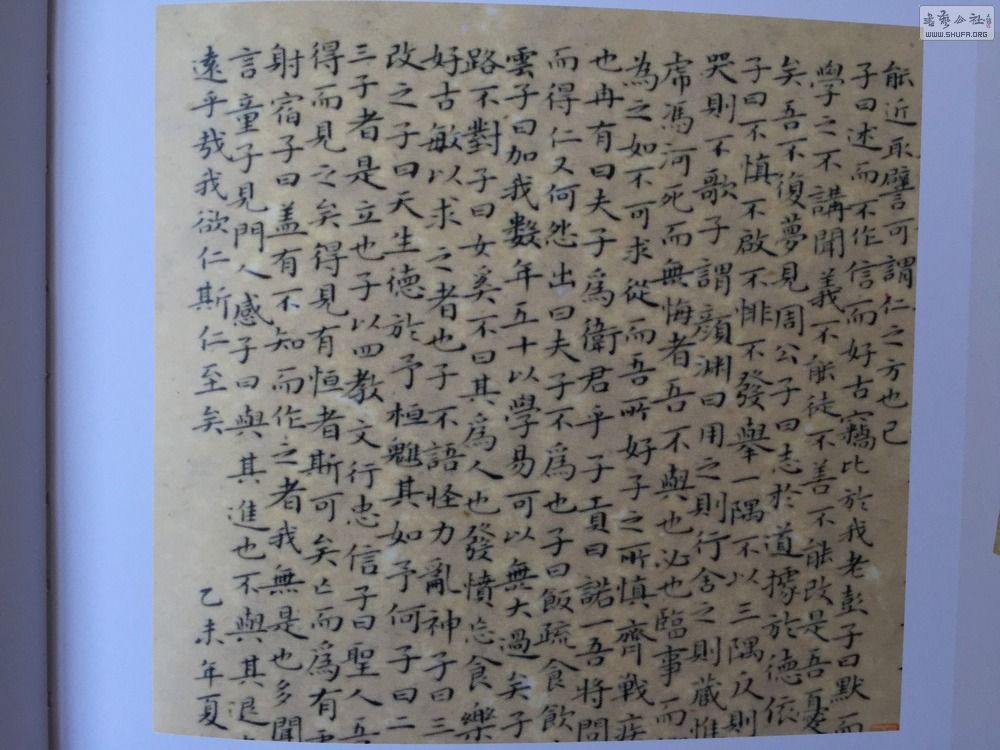 能近取譬可謂仁之方也已
子曰述而不作信而好古竊比於我老彭子曰默而
學之不講聞義不能徒不善不能改是吾憂
矣吾不復夢見周公子曰志於道據於德依
子曰不慎不啟不悱不發舉一隅不以三隅反則
哭則不歌子謂顏淵曰用之則行舍之則藏惟
虎馮河死而無悔者吾不與也必也臨事而
為之如不可求從而吾所好子之所慎齊戰疾
也冉有曰夫子爲衛君乎子貢曰諾一吾將問
而得仁又何怨出曰夫子不爲也子曰飯疏食飲
雲子曰加我数年五十以學易可以無大過矣子
路不對子曰女奚不曰其爲人也發憤忘食樂
好古敏以求之者也子不語怪力亂神子曰三
改之子曰天生德於予桓魋其如予何子曰二
三子者是立也子以四教文行忠信子曰聖人吾
得而見之矣得見有恒者斯可矣亡而爲有
射宿子曰盖有不知而作之者我無是也多聞
言童子見門人感子曰與其進也不與其退
遠乎哉我欲仁斯仁至矣
乙未年夏
WWW.SHUFA.ORG